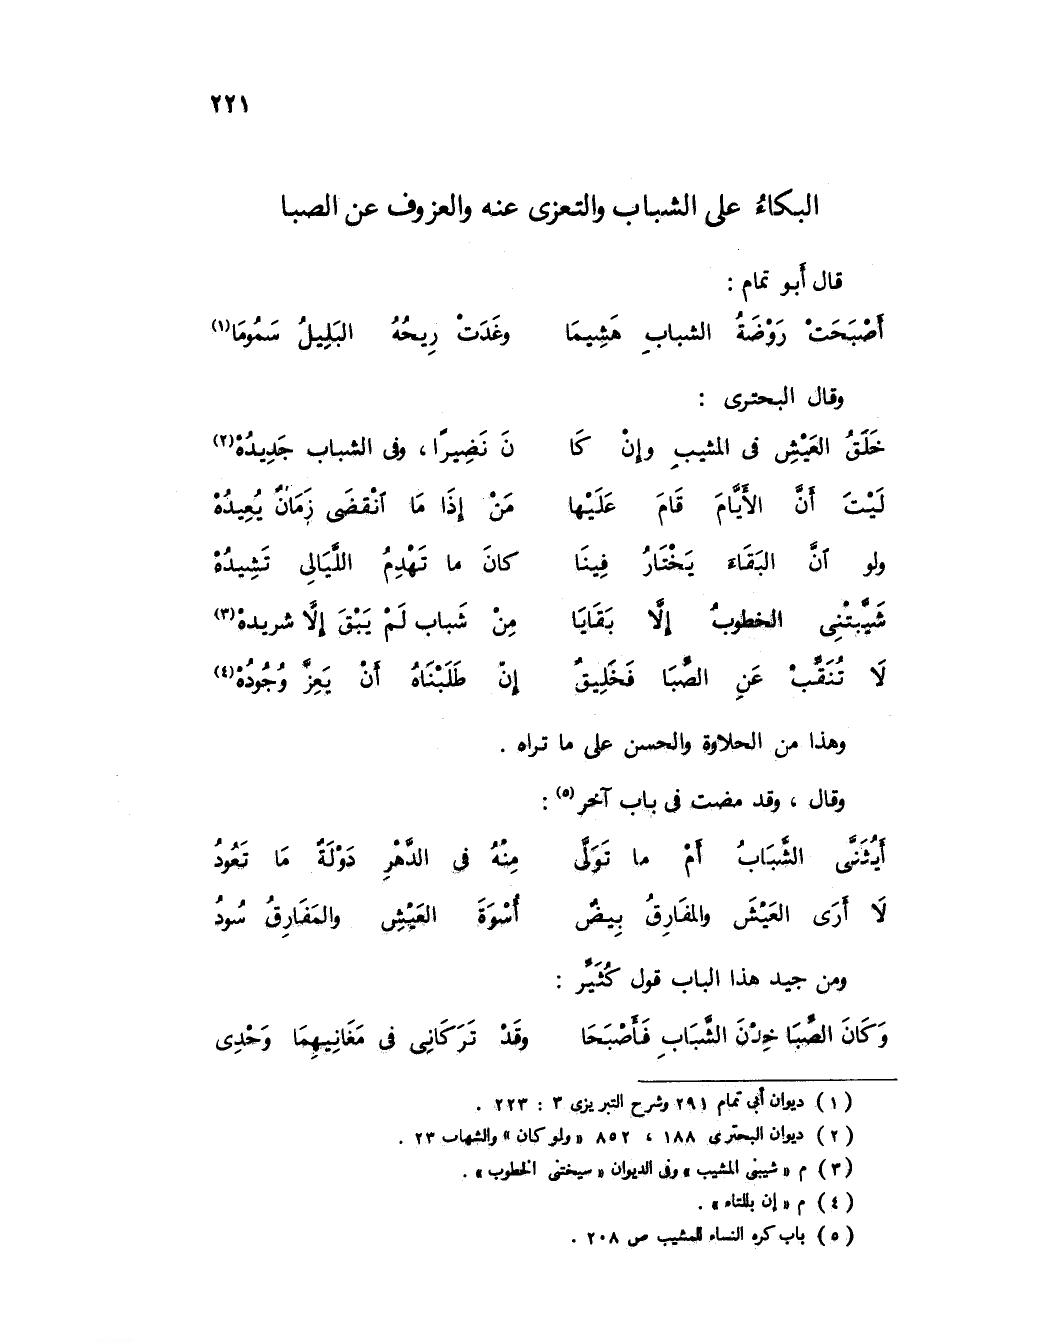 ٢٢١
البكاءُ على الشباب والتعزى عنه والعزوف عن الصبا
قال أَبو تمام :
أَصْبَحَتْ رَوْضَةُ الشبابِ هَشِيمَا وغَدَتْ رِيحُهُ البَلِيلُ سَمُومَا(١)
وقال البحترى :
خَلَقُ العَيْشِ فى المشيبِ وإِنْ كَا نَ نَضِيرًا ، وفى الشباب جَدِيدُهْ(٢)
لَيْتَ أَنَّ الأَيَّامَ قَامَ عَلَيْها مَنْ إِذَا مَا ٱنْقضَى زَمَانٌ يُعِيدُهْ
ولو ٱنَّ البَقَاءَ يَخْتَارُ فِينَا كانَ ما تَهْدِمُ اللَّيَالِى تَشِيدُهْ
شَيَّبتْنِى الخطوبُ إِلَّا بَقَايَا مِنْ شَباب لَمْ يَبْقَ إِلَّا شريدهْ(٣)
لَا تُنَقِّبْ عَنِ الصِّبَا فَخَلِيقٌ إِنْ طَلَبْنَاهُ أَنْ يَعِزَّ وُجُودُهْ(٤)
وهذا من الحلاوة والحسن على ما تراه .
وقال ، وقد مضت فى باب آخر(٥) :
أَيُثَنَّى الشَّبَابُ أَمْ ما تَوَلَّى مِنْهُ فى الدَّهْرِ دَوْلَةٌ مَا تَعُودُ
لَا أَرَى العَيْشَ والمفَارِقُ بِيضٌ أُسْوَةَ العَيْشِ والمَفَارِقُ سُودُ
ومن جيد هذا الباب قول كُثَيِّر :
وَكَانَ الصِّبَا خِدْنَ الشَّبَابِ فَأَصْبَحَا وقَدْ تَرَكَانِى فى مَغَانِيهِمَا وَحْدِى
(١) ديوان أبى تمام ٢٩١ وشرح التبريزى ٣ : ٢٢٣ .
(٢) ديوان البحترى ١٨٨ ، ٨٥٢ « ولو كان » والشهاب ٢٣ .
(٣) م « شيبنى المشيب » وفى الديوان « سيختنى الخطوب » .
(٤) م « إن بالتاء » .
(٥) باب كره النساء المشيب ص ٢٠٨ .